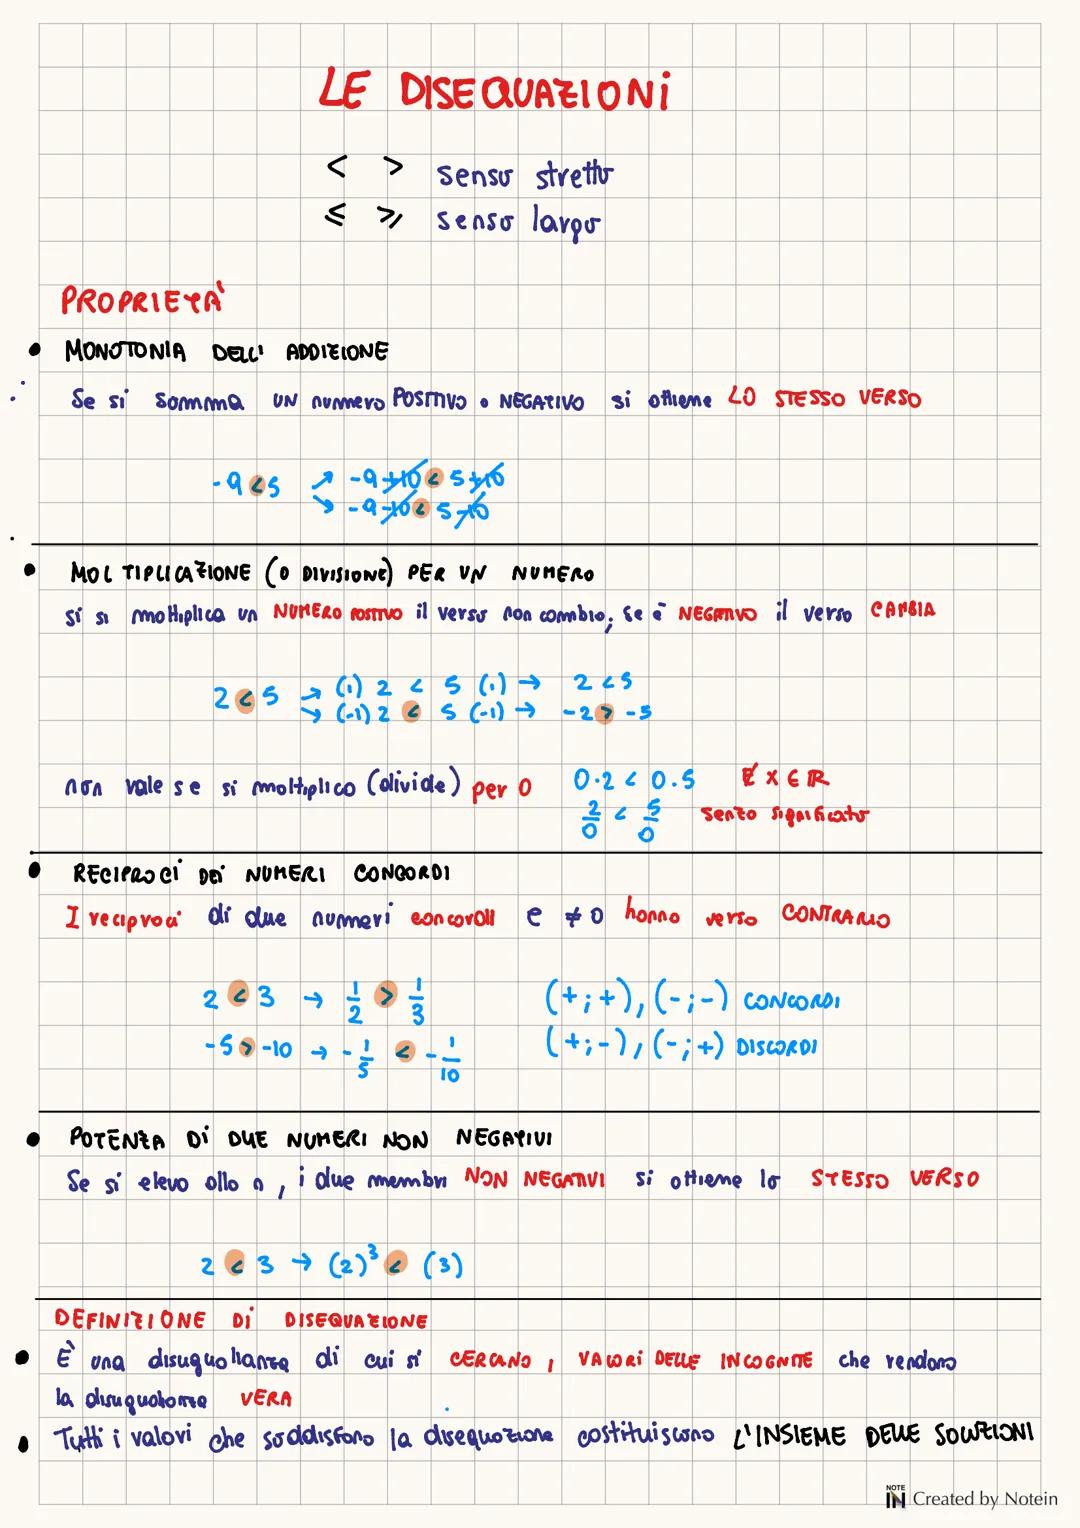 LE DISEQUAZIONi
< > senso stretto
≤ ≥ senso largo
PROPRIETÀ
• MONOTONIA DELL' ADDIZIONE
Se si somma UN numero POSITIVO o NEGATIVO si ottiene LO STESSO VERSO
-9 < 5 ↗ -9 +10 < 5 +10
↘ -9 -10 < 5 -10
• MOLTIPLICAZIONE (O DIVISIONE) PER UN NUMERO
si si moltiplica un NUMERO POSITIVO il verso non cambia; se è NEGATIVO il verso CAMBIA
2 < 5 → (1) 2 < 5 (1) → 2 < 5
→ (-1) 2 < 5 (-1) → -2 > -5
non vale se si moltiplica (divide) per 0 0·2 < 0·5 ∄ x ∈ ℝ
2/0 < 5/0 senza significato
• RECIPROCI DEI NUMERI CONCORDI
I reciproci di due numeri concordi e ≠ 0 hanno verso CONTRARIO
2 < 3 → 1/2 > 1/3 (+;+), (-;-) CONCORDI
-5 > -10 → -1/5 < -1/10 (+;-), (-;+) DISCORDI
• POTENZA Di DUE NUMERI NON NEGATIVI
Se si eleva alla n, i due membri NON NEGATIVI si ottiene lo STESSO VERSO
2 < 3 → (2)³ < (3)
DEFINIZIONE Di DISEQUAZIONE
• È una disuguaglianza di cui si CERCANO, VALORI DELLE INCOGNITE che rendono
la disuguaglianza VERA
• Tutti i valori che soddisfano la disequazione costituiscono L'INSIEME DELLE SOLUZIONI
NOTE IN Created by Notein